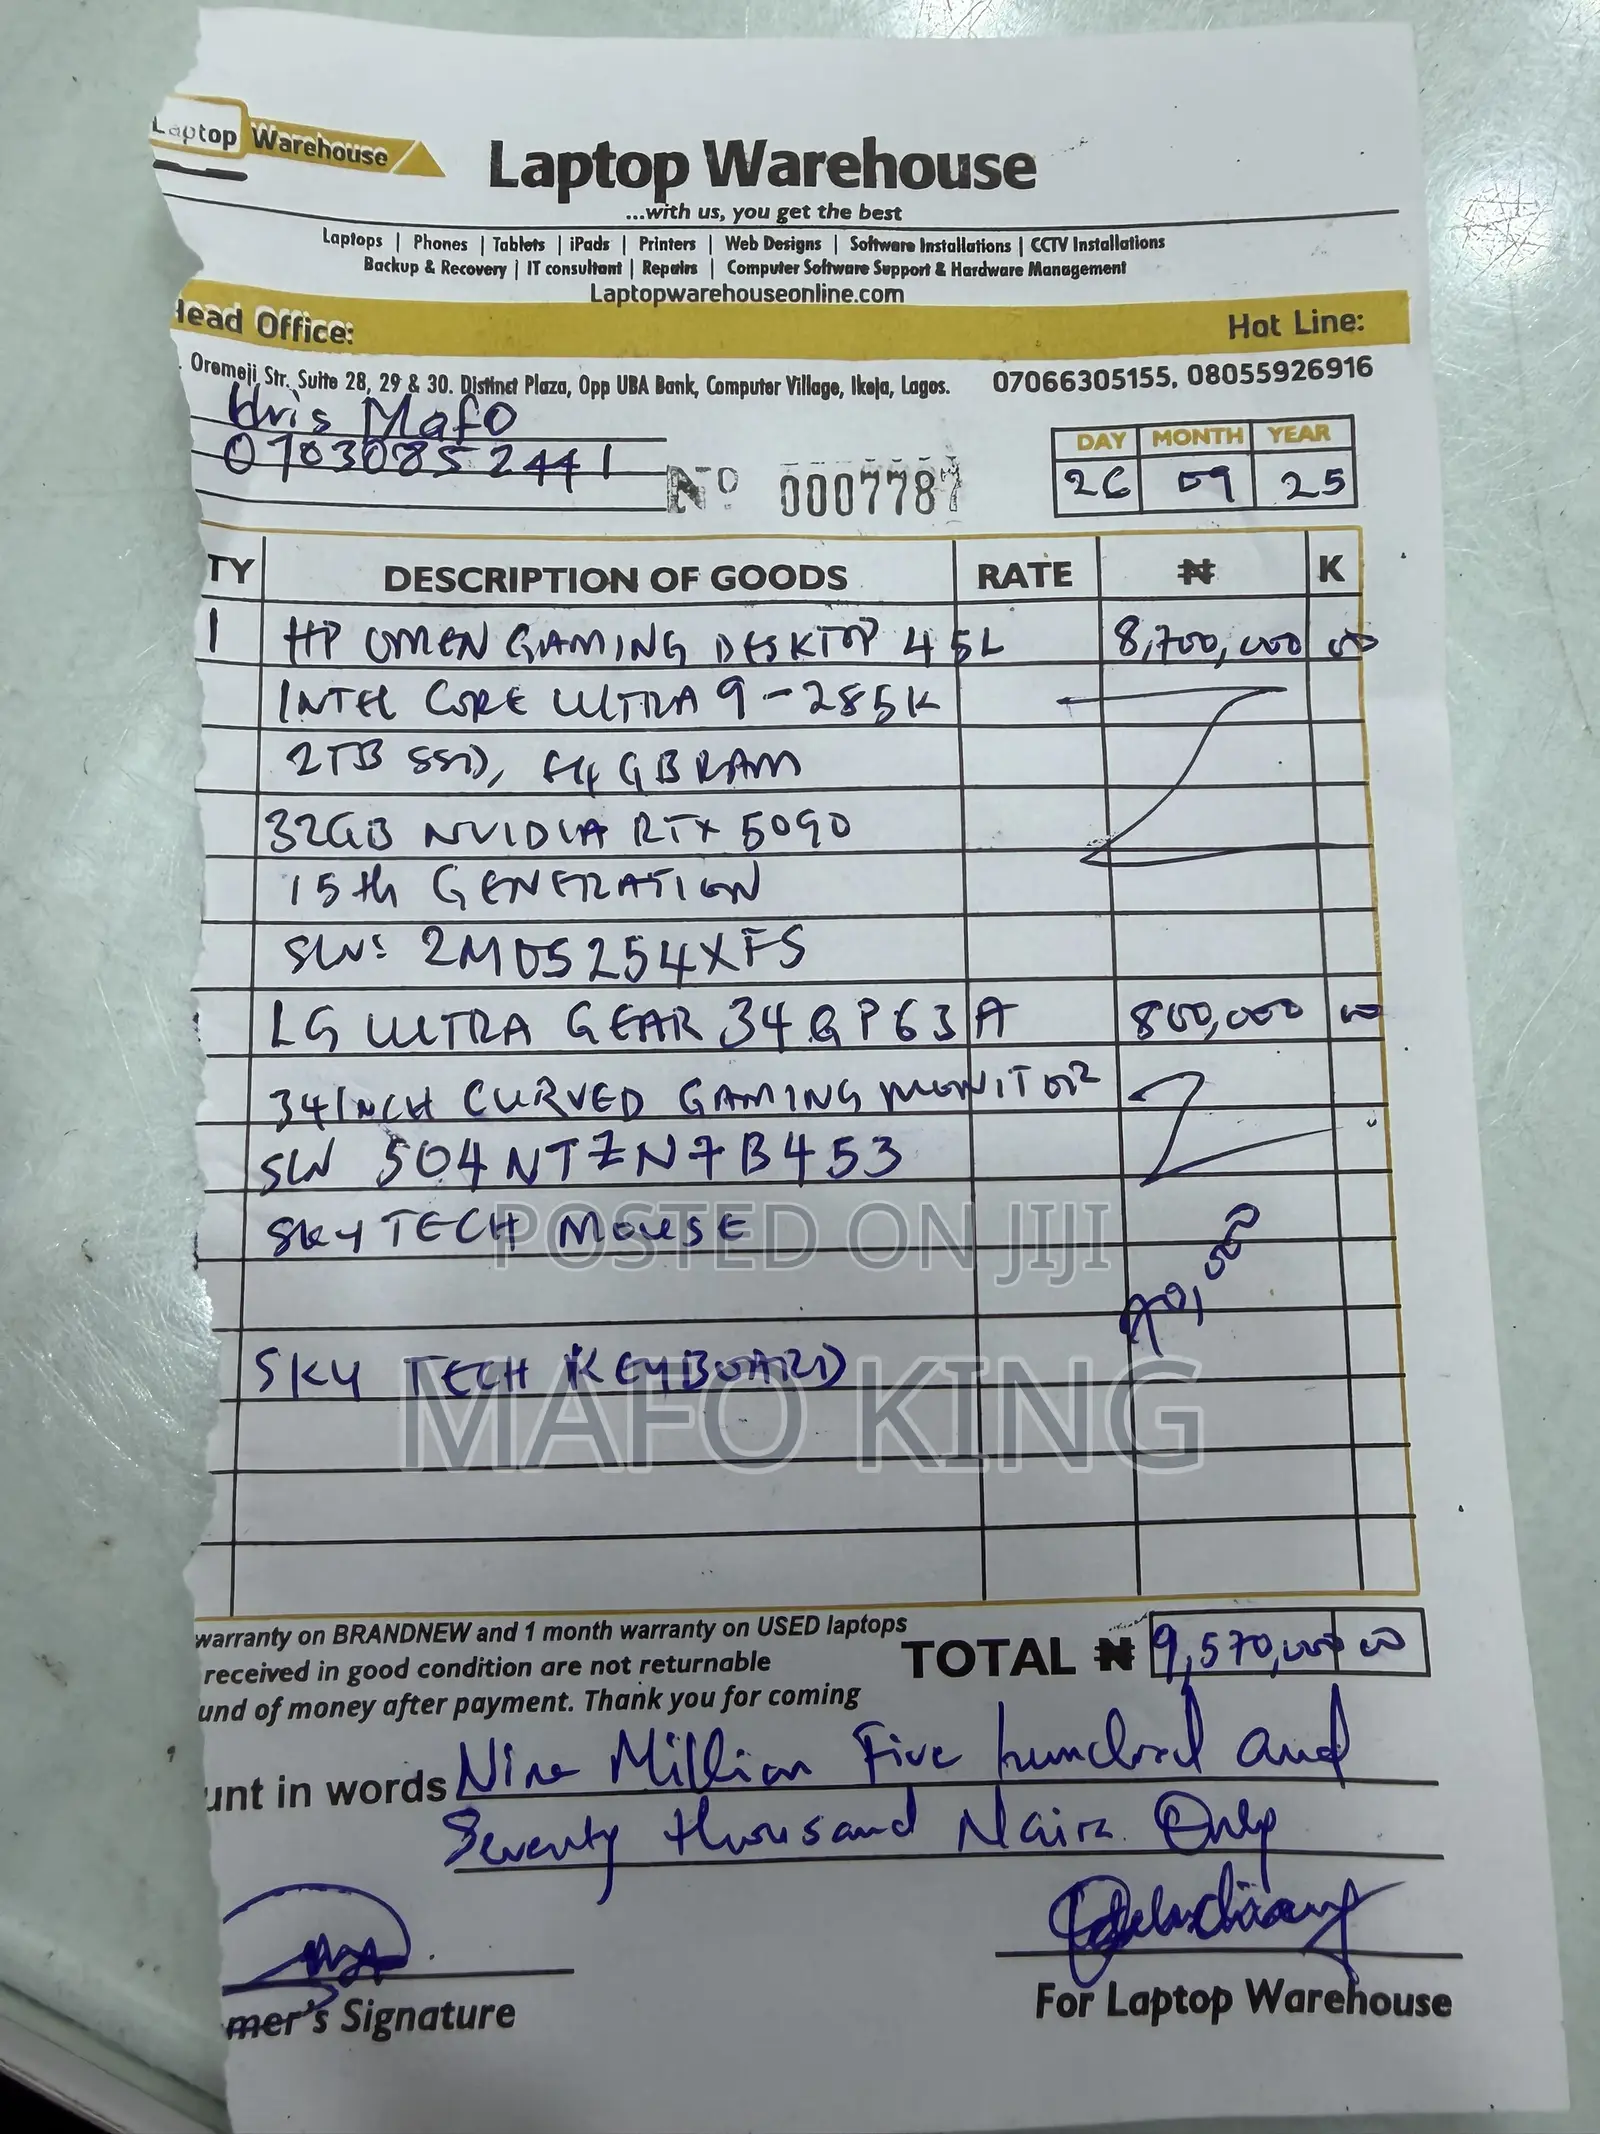 Laptop Warehouse
Laptop Warehouse
...with us, you get the best
Laptops | Phones | Tablets | iPads | Printers | Web Designs | Software Installations | CCTV Installations
Backup & Recovery | IT consultant | Repairs | Computer Software Support & Hardware Management
Laptopwarehouseonline.com
Head Office:
Hot Line:
Oremeji Str. Suite 28, 29 & 30. Distinct Plaza, Opp UBA Bank, Computer Village, Ikeja, Lagos.
07066305155, 08055926916
Mafo
07030852441
No 0007787
DAY MONTH YEAR
26 09 25
TY DESCRIPTION OF GOODS RATE ₦ K
1 HP OMEN GAMING DESKTOP 45L 8,700,000 00
INTEL CORE ULTRA 9-285K
2TB SSD, 64GB RAM
32GB NVIDIA RTX 5090
15th GENERATION
S/N: 2MD5254XFS
LG ULTRA GEAR 34GP63A 800,000 00
34 INCH CURVED GAMING MONITOR
S/N 504NTZN7B453
SKY TECH MOUSE
POSTED ON JIJI
SKY TECH KEYBOARD
MAFO KING
warranty on BRANDNEW and 1 month warranty on USED laptops
received in good condition are not returnable
und of money after payment. Thank you for coming
TOTAL ₦ 9,570,000 00
unt in words Nine Million Five hundred and
Seventy thousand Naira Only
mer's Signature
For Laptop Warehouse